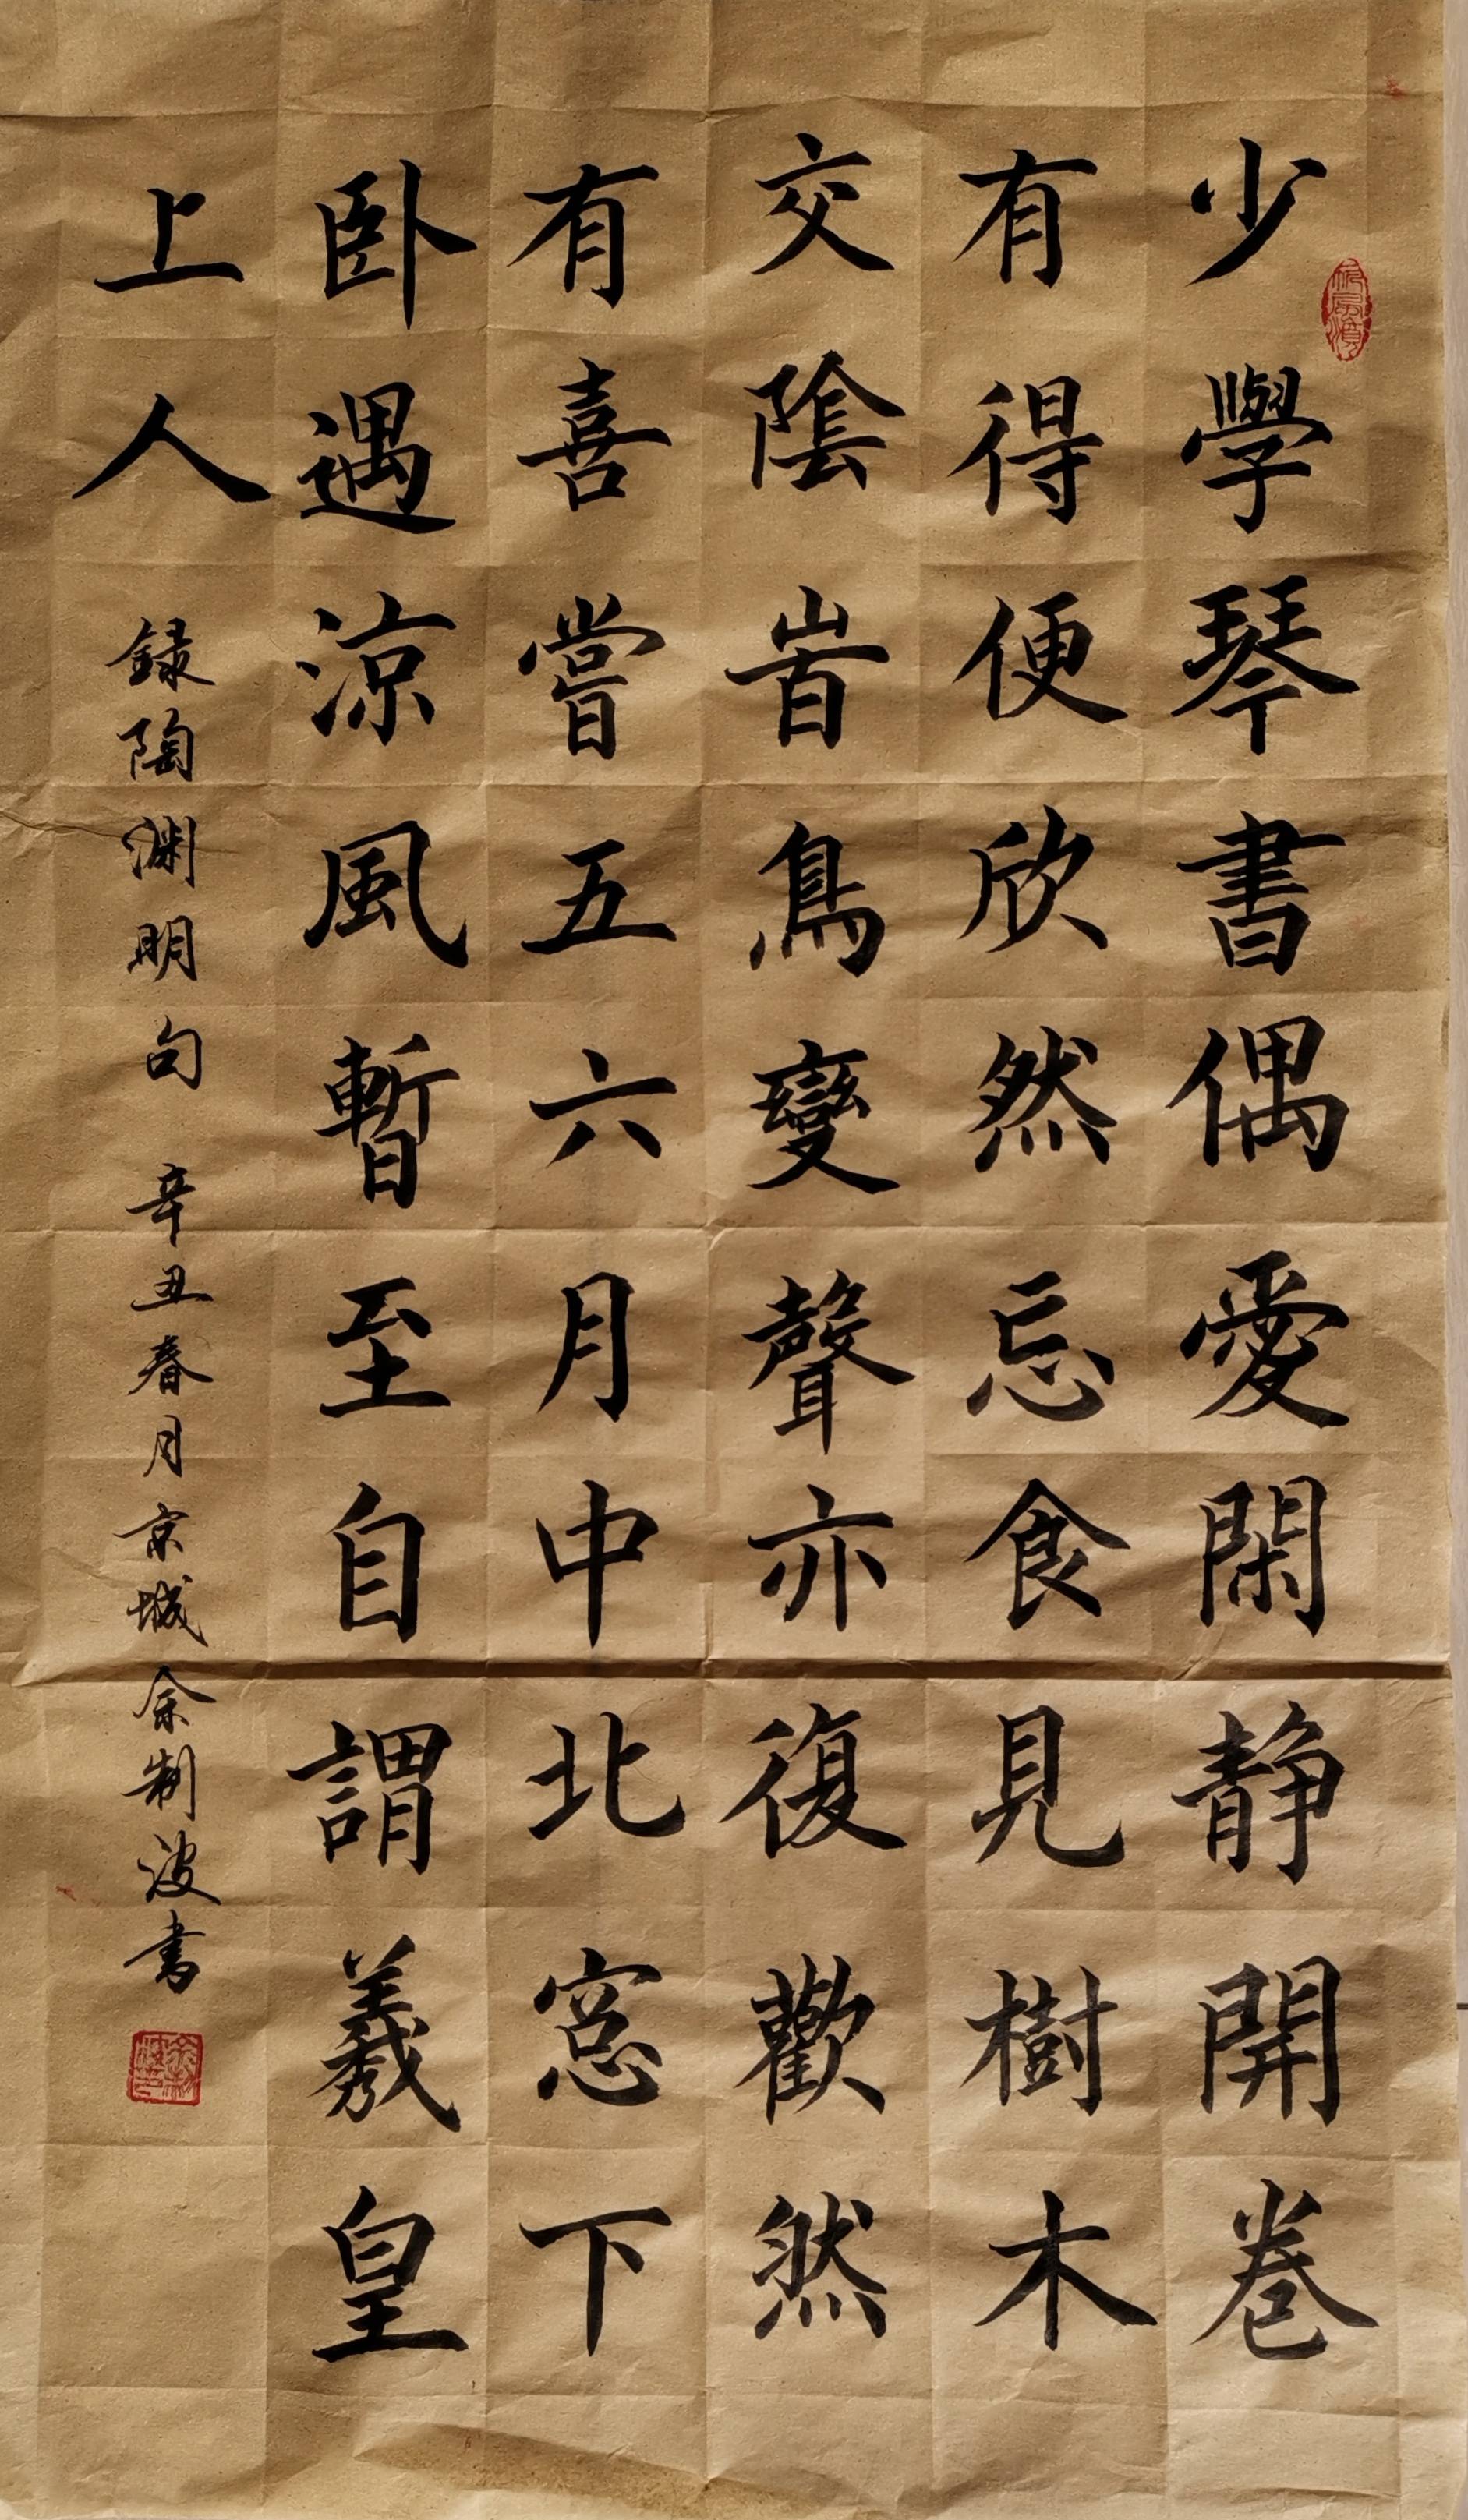 少學琴書偶愛閑静開卷
有得便欣然忘食見樹木
交陰旹鳥變聲亦復歡然
有喜嘗五六月中北窓下
卧遇涼風暫至自謂羲皇
上人
録陶渊明句 辛丑春月京城余制波書